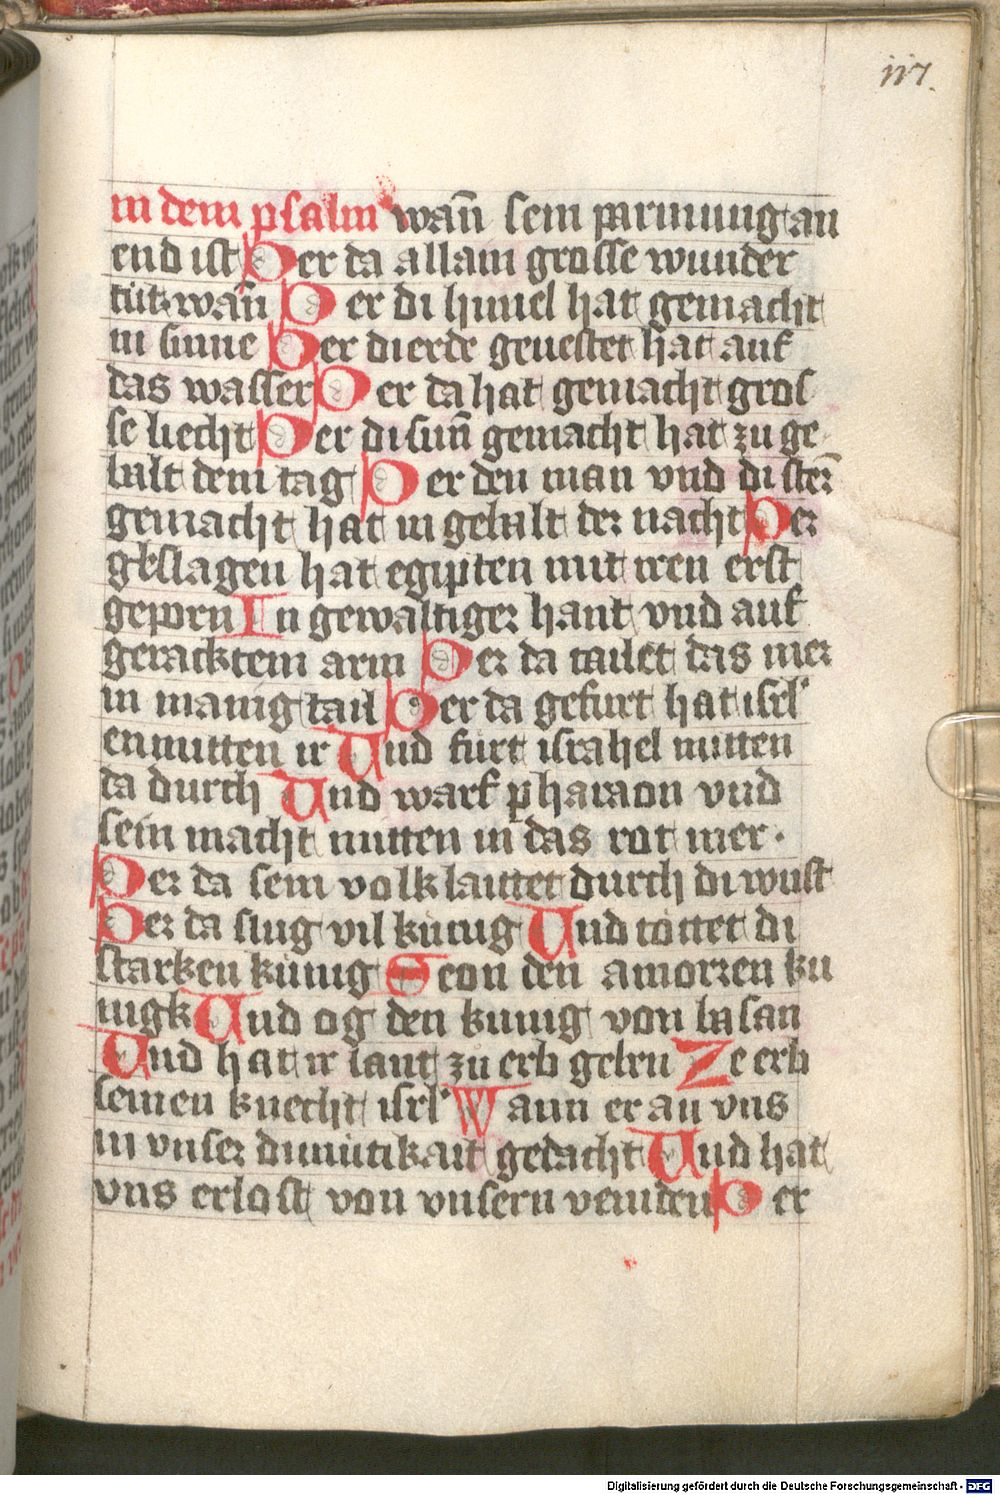 117.
in dem psalm wan̄ sein parmung an
end ist Der da allain grosse wunder
tut wan̄ Der di himel hat gemacht
in sinne Der di erde geuestet hat auf
das wasser Der da hat gemacht gros
se liecht Der di sun̄ gemacht hat zu ge
balt dem tag Der den man vnd di ster̄
gemacht hat in gebalt der nacht Der
geslagen hat egipten mit iren erst
geporn In gewaltiger hant vnd auf
geracktem arm Der da tailet das mer
in manig tail Der da gefurt hat isrl'
enmitten ir Und furt israhel mitten
da durch Und warf pharaon vnd
sein macht mitten in das rot mer.
Der da sein volk laittet durch di wust
Der da slug vil kunig Und tottet di
starken kunig Seon den amorren ku
nigk Und og den kunig von basan
Und hat ir lant zu erb geben Ze erb
seinen knecht isrl' Wann er an vns
in vnser dimutikait gedacht Und hat
vns erlost von vnsern veinden Der
Digitalisierung gefördert durch die Deutsche Forschungsgemeinschaft - DFG